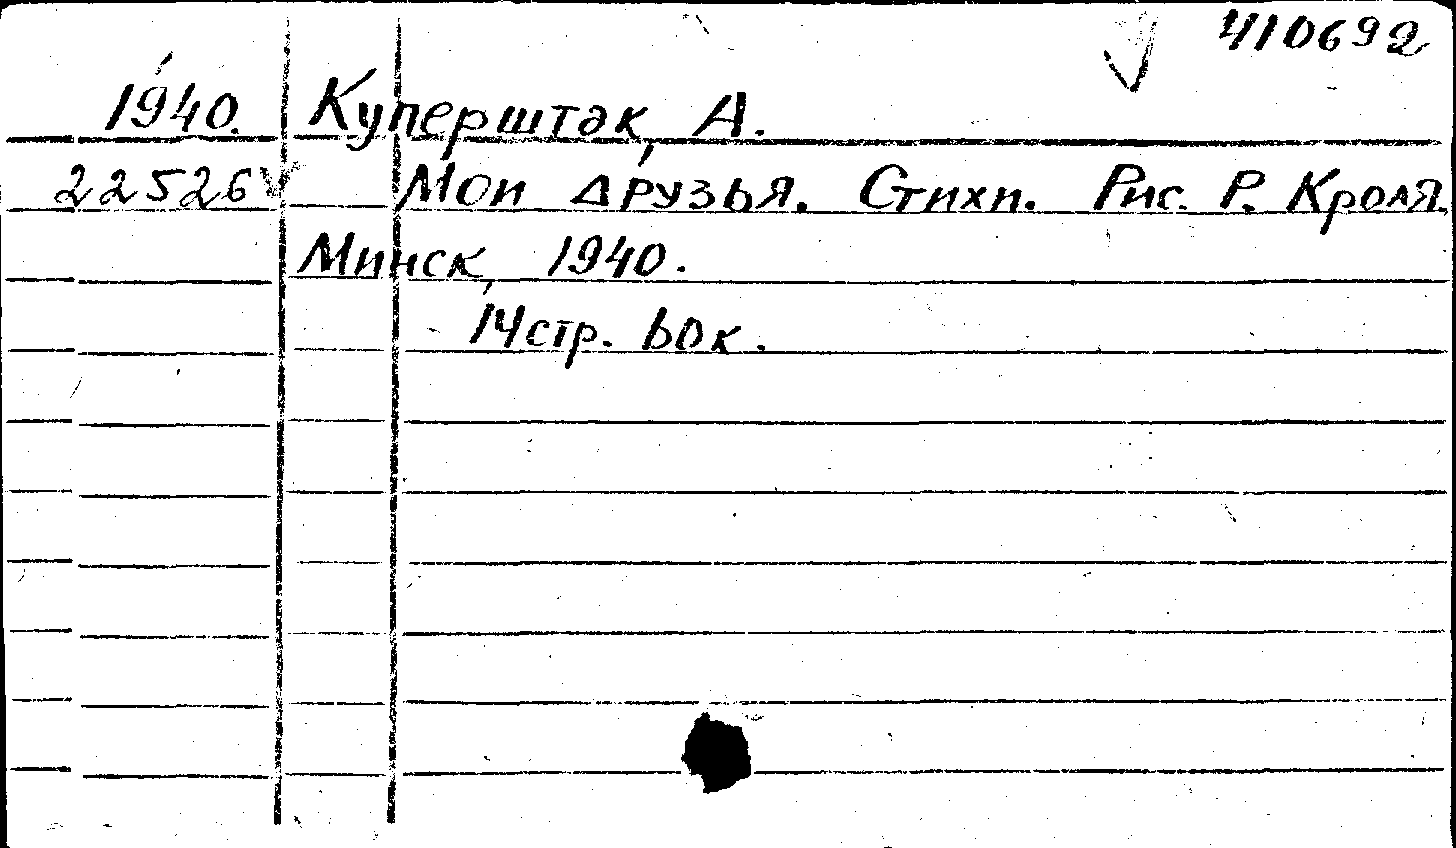 410692
1940. Куперштак, А.
22526 Мои друзья. Стихи. Рис. Р. Кроля.
Минск, 1940.
14 стр. 60 к.